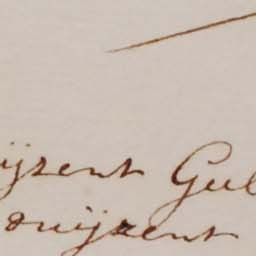 ijzent Gul
duijzent